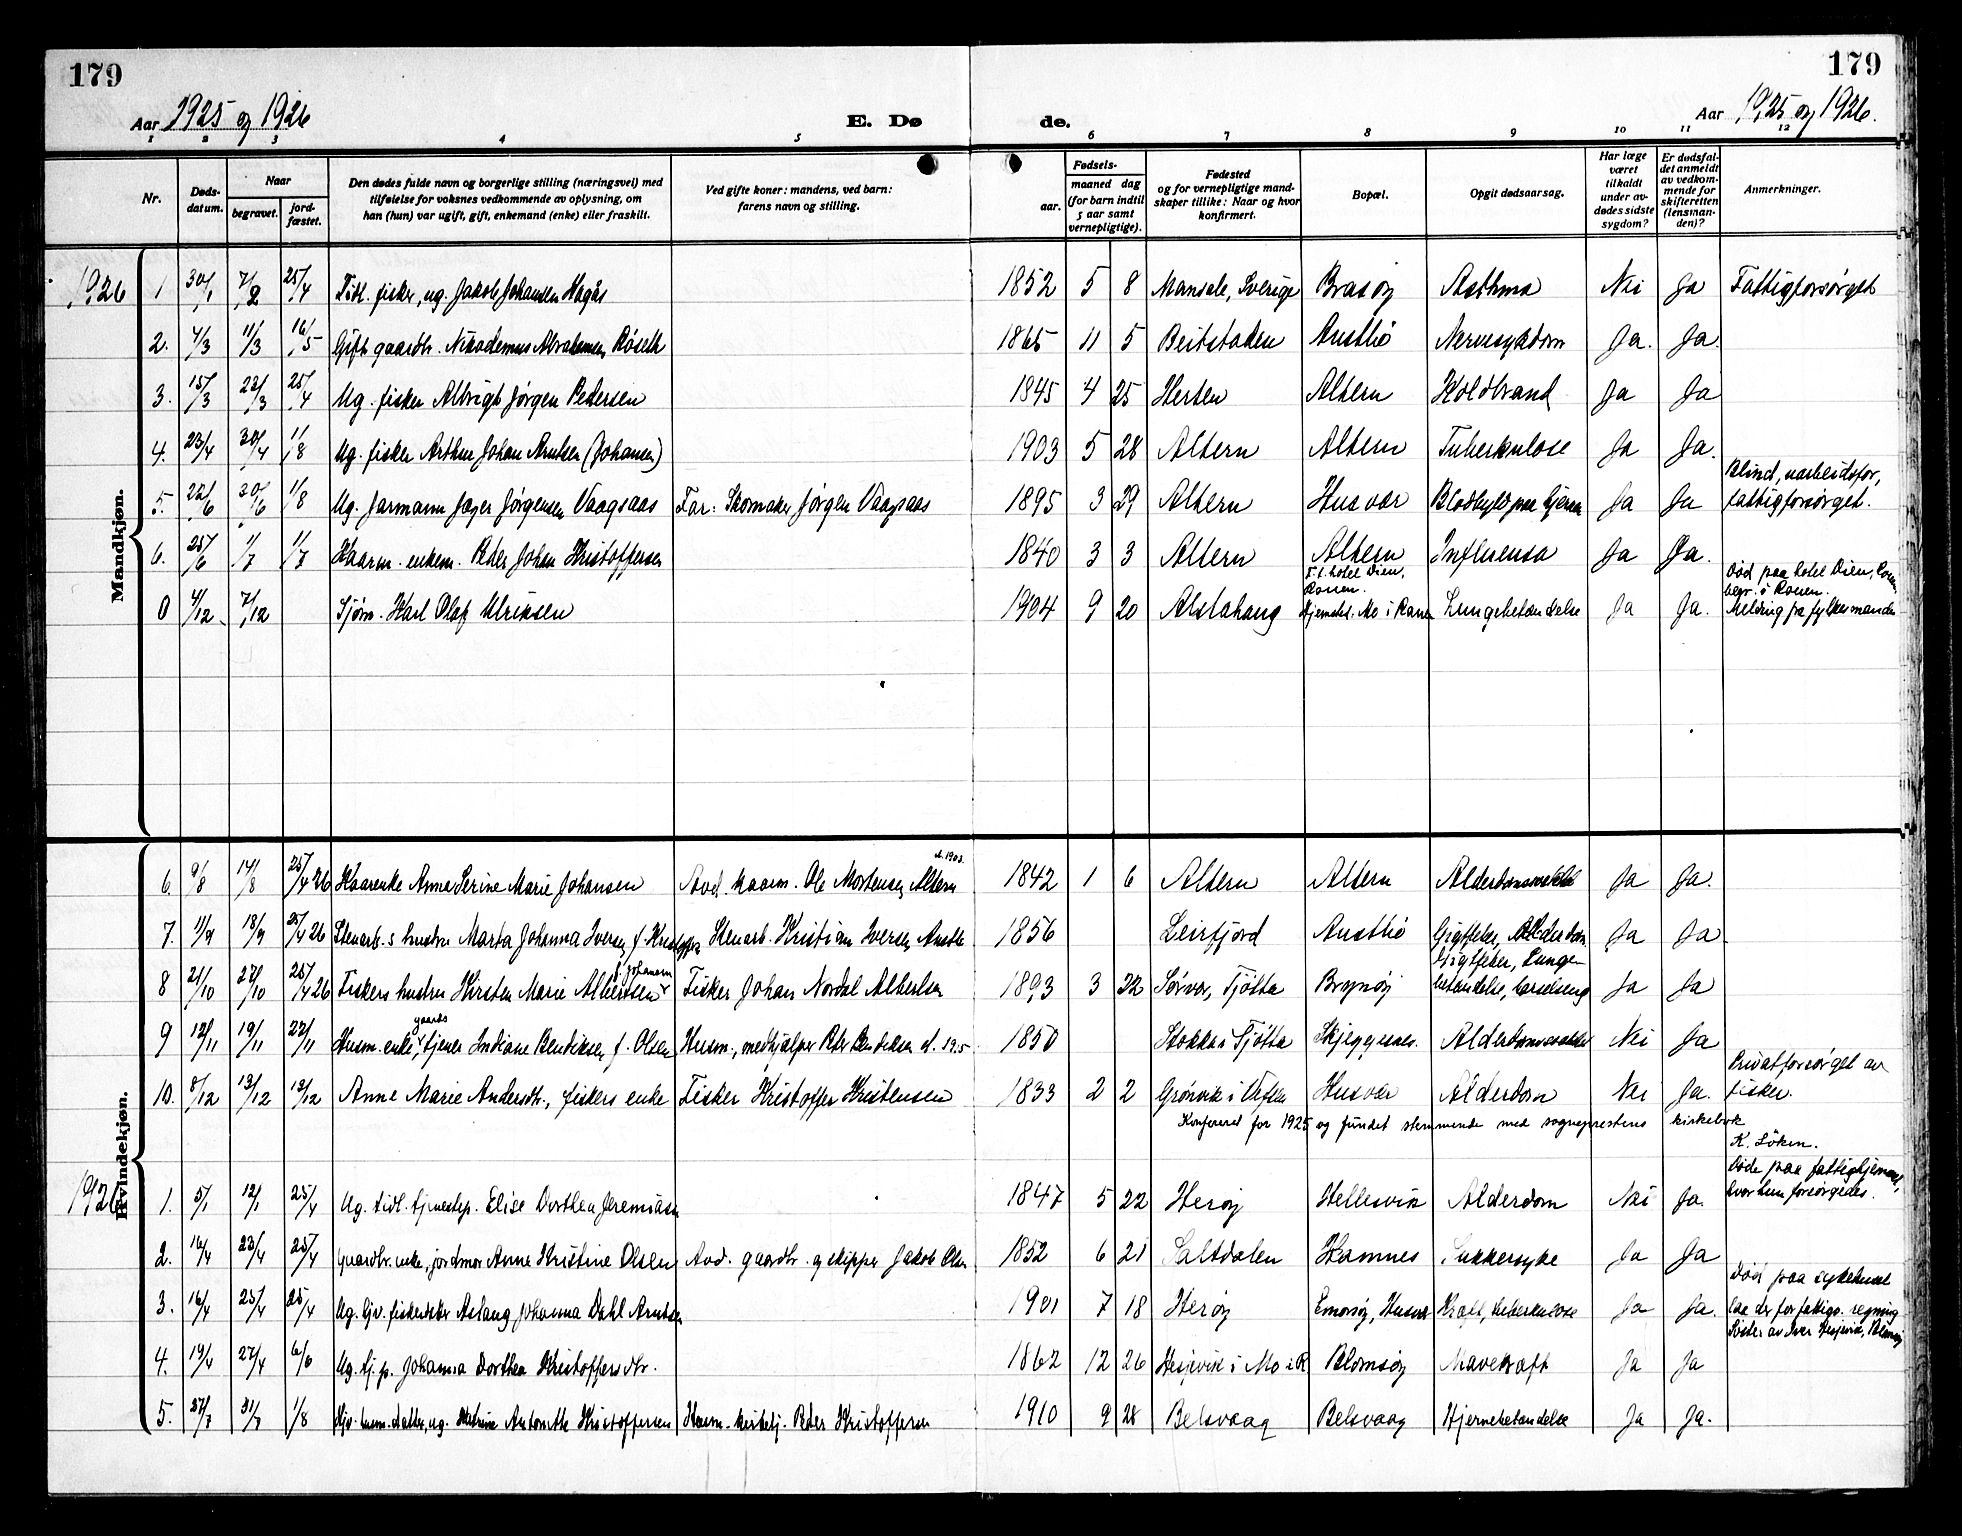 179
179
Aar 1925 og 1926
E. Dø
de.
Aar 1925 og 1926.
1 2 3 4 5 6 7 8 9 10 11 12
Nr.
Døds-datum.
Naar
begravet.
jord-fæstet.
Den dødes fulde navn og borgerlige stilling (næringsvei) med
tilføielse for voksnes vedkommende av oplysning, om
han (hun) var ugift, gift, enkemand (enke) eller fraskilt.
Ved gifte koner: mandens, ved barn:
farens navn og stilling.
Fødsels-
aar.
maaned dag
(for barn indtil
5 aar samt
vernepligtige).
Fødested
og for vernepligtige mand-
skaper tillike: Naar og hvor
konfirmert.
Bopæl.
Opgit dødsaarsag.
Har læge
været
tilkaldt
under av-
dødes sidste
sygdom?
Er dødsfal-
det anmeldt
av vedkom-
mende for
skifteretten
(lensman-
den)?
Anmerkninger.
Mandkjøn.
1926 1 30/1 7/2 25/4 Tidl. fisker, ug. Jakob Johansen Hagås 1852 5 8 Sverige Brasøy Asthma Nei Ja Fattigforsørget
2. 4/3 11/3 16/5 Gift gaardbr. Nikodemus Abrahamsen Røseth 1865 11 5 Beitstaden Austbø Nervesykdom Ja. Ja.
3. 15/3 22/3 25/4 Ug. fisker Albrigt Jørgen Pedersen 1845 4 25 Herten Altern Koldbrand Ja Ja
4. 23/4 30/4 1/8 Ug. fisker Arthur Johan Arntsen (Johansen) 1903 5 28 Altern Altern Tuberkulose Ja Ja.
5. 22/6 30/6 1/8 Ug. Jarmann Jøger Jørgensen Vaagsaas Far: Skomaker Jørgen Vaagsaas 1895 3 29 Altern Husvær Ja Ja Blind, uarbeidsfør,
fattigforsørget.
6. 25/6 1/7 1/7 Kaarm. enkem. Peder Johan Kristoffersen 1840 3 3 Altern Altern Influensa Ja Ja.
0 4/12 7/12 Sjøm. Karl Olaf Ulriksen 1904 9 20 Alstahaug F. t. hotel Dien,
Ranen.
Hjemsted. Mo i Ranen Lungebetændelse Ja Ja. Død paa hotel Dien, Ranen
begr. i Ranen.
Melding fra fylkesmanden
Kvindekjøn.
6. 9/8 14/8 25/4 26 Kaarenke Anna Serine Marie Johansen Avd. kaarm. Ole Mortensen Altern d. 1903. 1842 1 6 Altern Altern Alderdomssvakhet Ja Ja.
7. 11/9 18/9 25/4 26 Stenarb.s hustru Marta Johanna Iversen f. Kristoffersen Stenarb. Kristian Iversen Austbø 1856 Leirfjord Austbø Gigtfeber, Alderdom. Ja Ja
8 21/10 27/10 25/4 26 Fiskers hustru Kirsten Marie Albertsen f. Johansen Fisker Johan Nordal Albertsen 1893 3 22 Sørvær, Tjøtta Brynøy Gigtfeber, Lunge-
betændelse, barselseng Ja Ja
9 12/11 19/11 22/11 Husm. enke, gaards tjener Indiane Bendiksen, f. Olsen Husm., medhjælper Peter Bendiksen d. 1915 1850 Stokka i Tjøtta Skjeggesnes. Alderdomssvakhet Nei Ja
10. 8/12 13/12 13/12 Anne Marie Andersdtr., fiskers enke Fisker Kristoffer Kristensen 1833 2 2 Grønvik i Vefsn Husvær Alderdom Nei Ja. Privatforsørget av
fisker.
Konfereret for 1925 og fundet stemmende med sogneprestens kirkebok
K. Löken.
1926 1. 5/1 12/1 25/4 Ug. tidl. tjenestep. Elise Dorthea Jeremiasen 1847 5 22 Herøy Hellesvik Alderdom Nei Ja. Døde paa fattighjemmet,
hvor hun forsørgedes.
2. 16/4 23/4 25/4 Gaardbr. enke, jordmor Anne Kristine Olsen Avd. gaardbr. og skipper Jakob Olsen 1852 6 21 Saltdalen Hamnes Sukkersyke Ja Ja
3. 16/4 25/4 25/4 Ug. hjv. fiskerdatter Aslaug Johanna Dahl Arntsen 1901 7 18 Herøy Emarsøy, Husvær Kræft, tuberkulose Ja Ja. Død paa sykehuset
laa der for fattigv. regning
4. 19/4 27/4 6/6 Ug. tj. p. Johanna Dorthea Kristoffersdtr. 1862 12 26 Hesjevik i Mo i R. Blomsøy Mavekræft Ja Ja Søster av Iver Hesjevik, Blomsøy
5. 27/7 31/7 1/8 Hjv. husm. datter, ug. Katrine Antonette Kristoffersen Husm. kirketj. Peder Kristoffersen 1910 9 28 Belsvaag Belsvaag Hjernebetændelse Ja Ja.